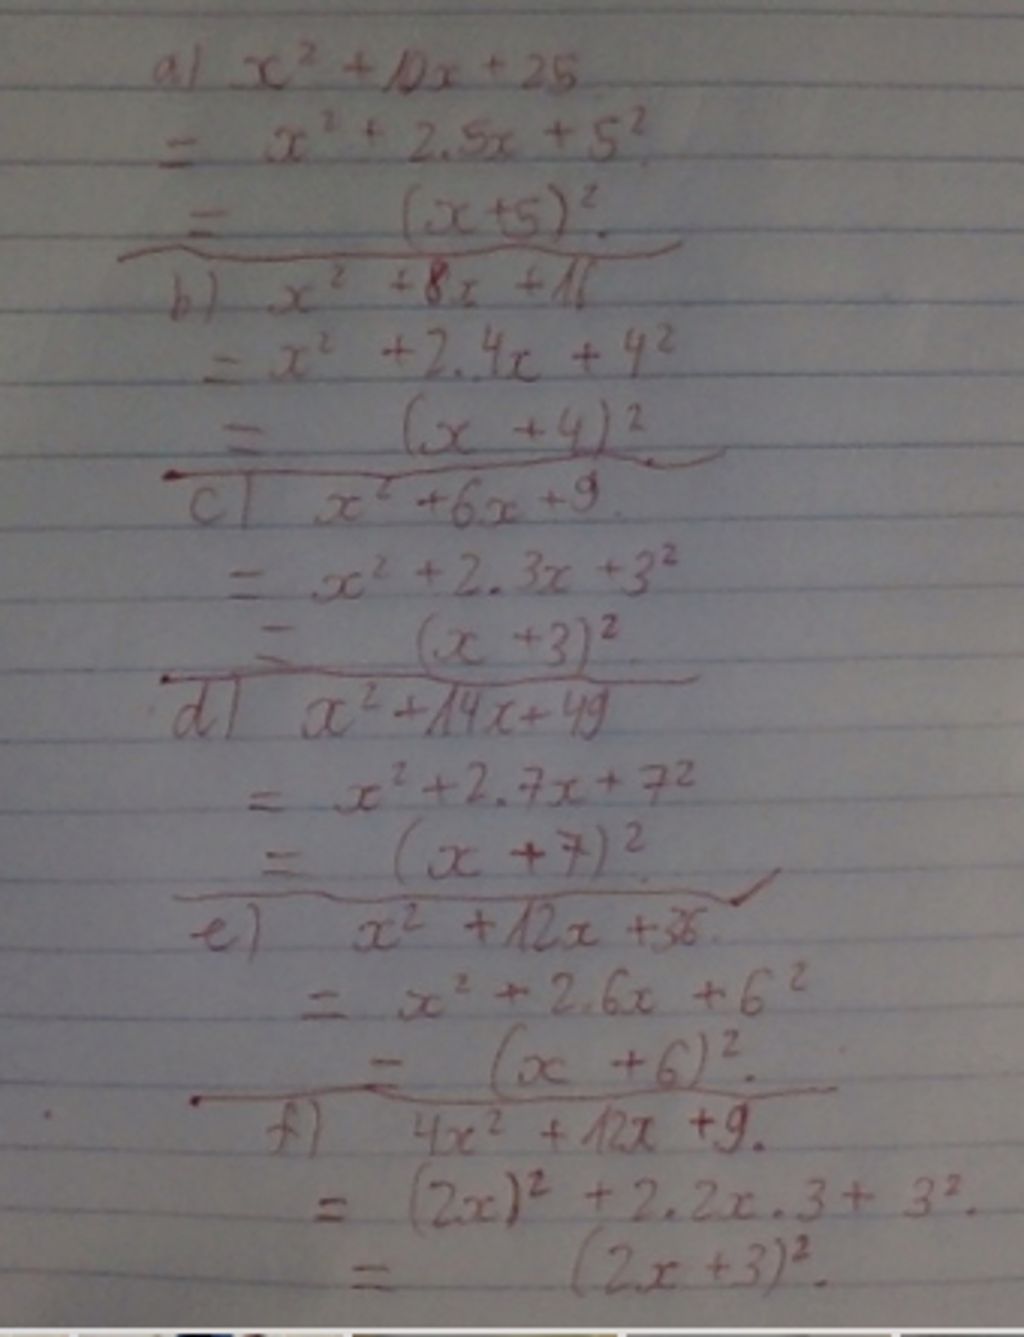 a) x² + 10x + 25
= x² + 2.5x + 5²
= (x+5)².
b) x² + 8x + 16
= x² + 2.4x + 4²
= (x + 4)²
c) x² + 6x + 9.
= x² + 2.3x + 3²
= (x + 3)².
d) x² + 14x + 49
= x² + 2.7x + 7²
= (x + 7)².
e) x² + 12x + 36.
= x² + 2.6x + 6²
= (x + 6)².
f) 4x² + 12x + 9.
= (2x)² + 2.2x.3 + 3².
= (2x + 3)².